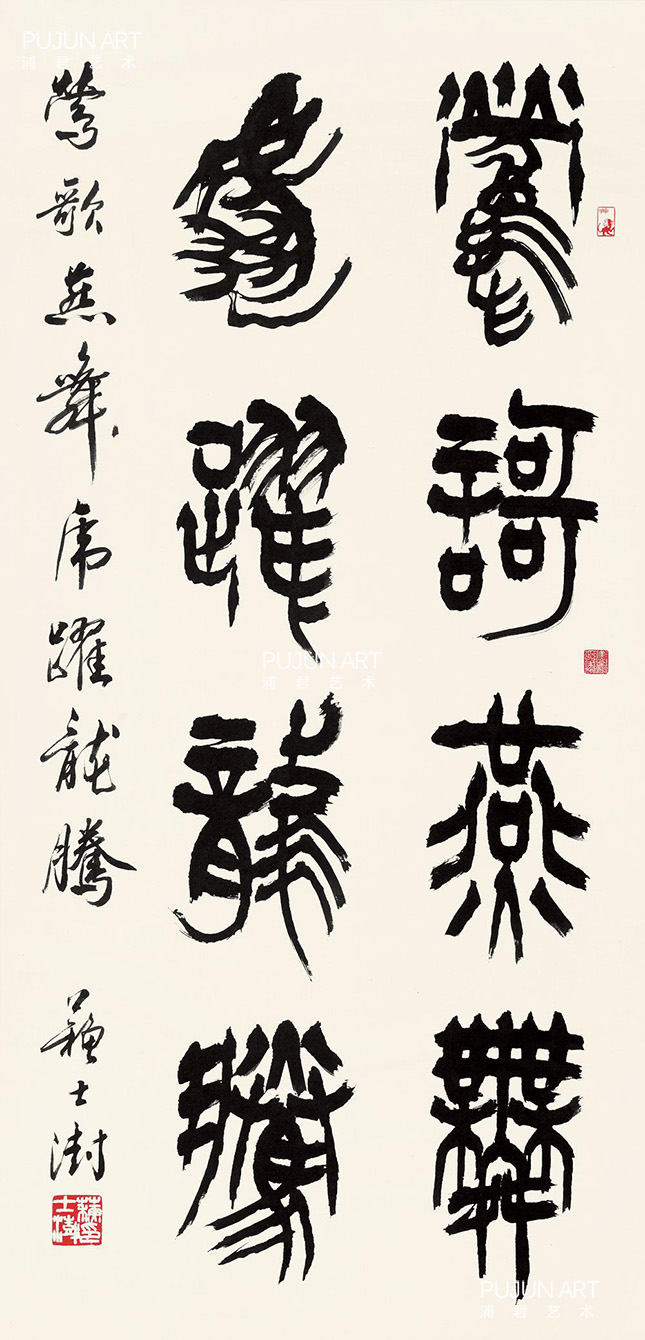 鶯謌燕舞
虎躍龍騰
莺歌燕舞虎躍龍騰
蘇士澍
蘇士澍印
PUJUN ART
浦君艺术
PUJUN ART
浦君艺术
PUJUN ART
浦君艺术